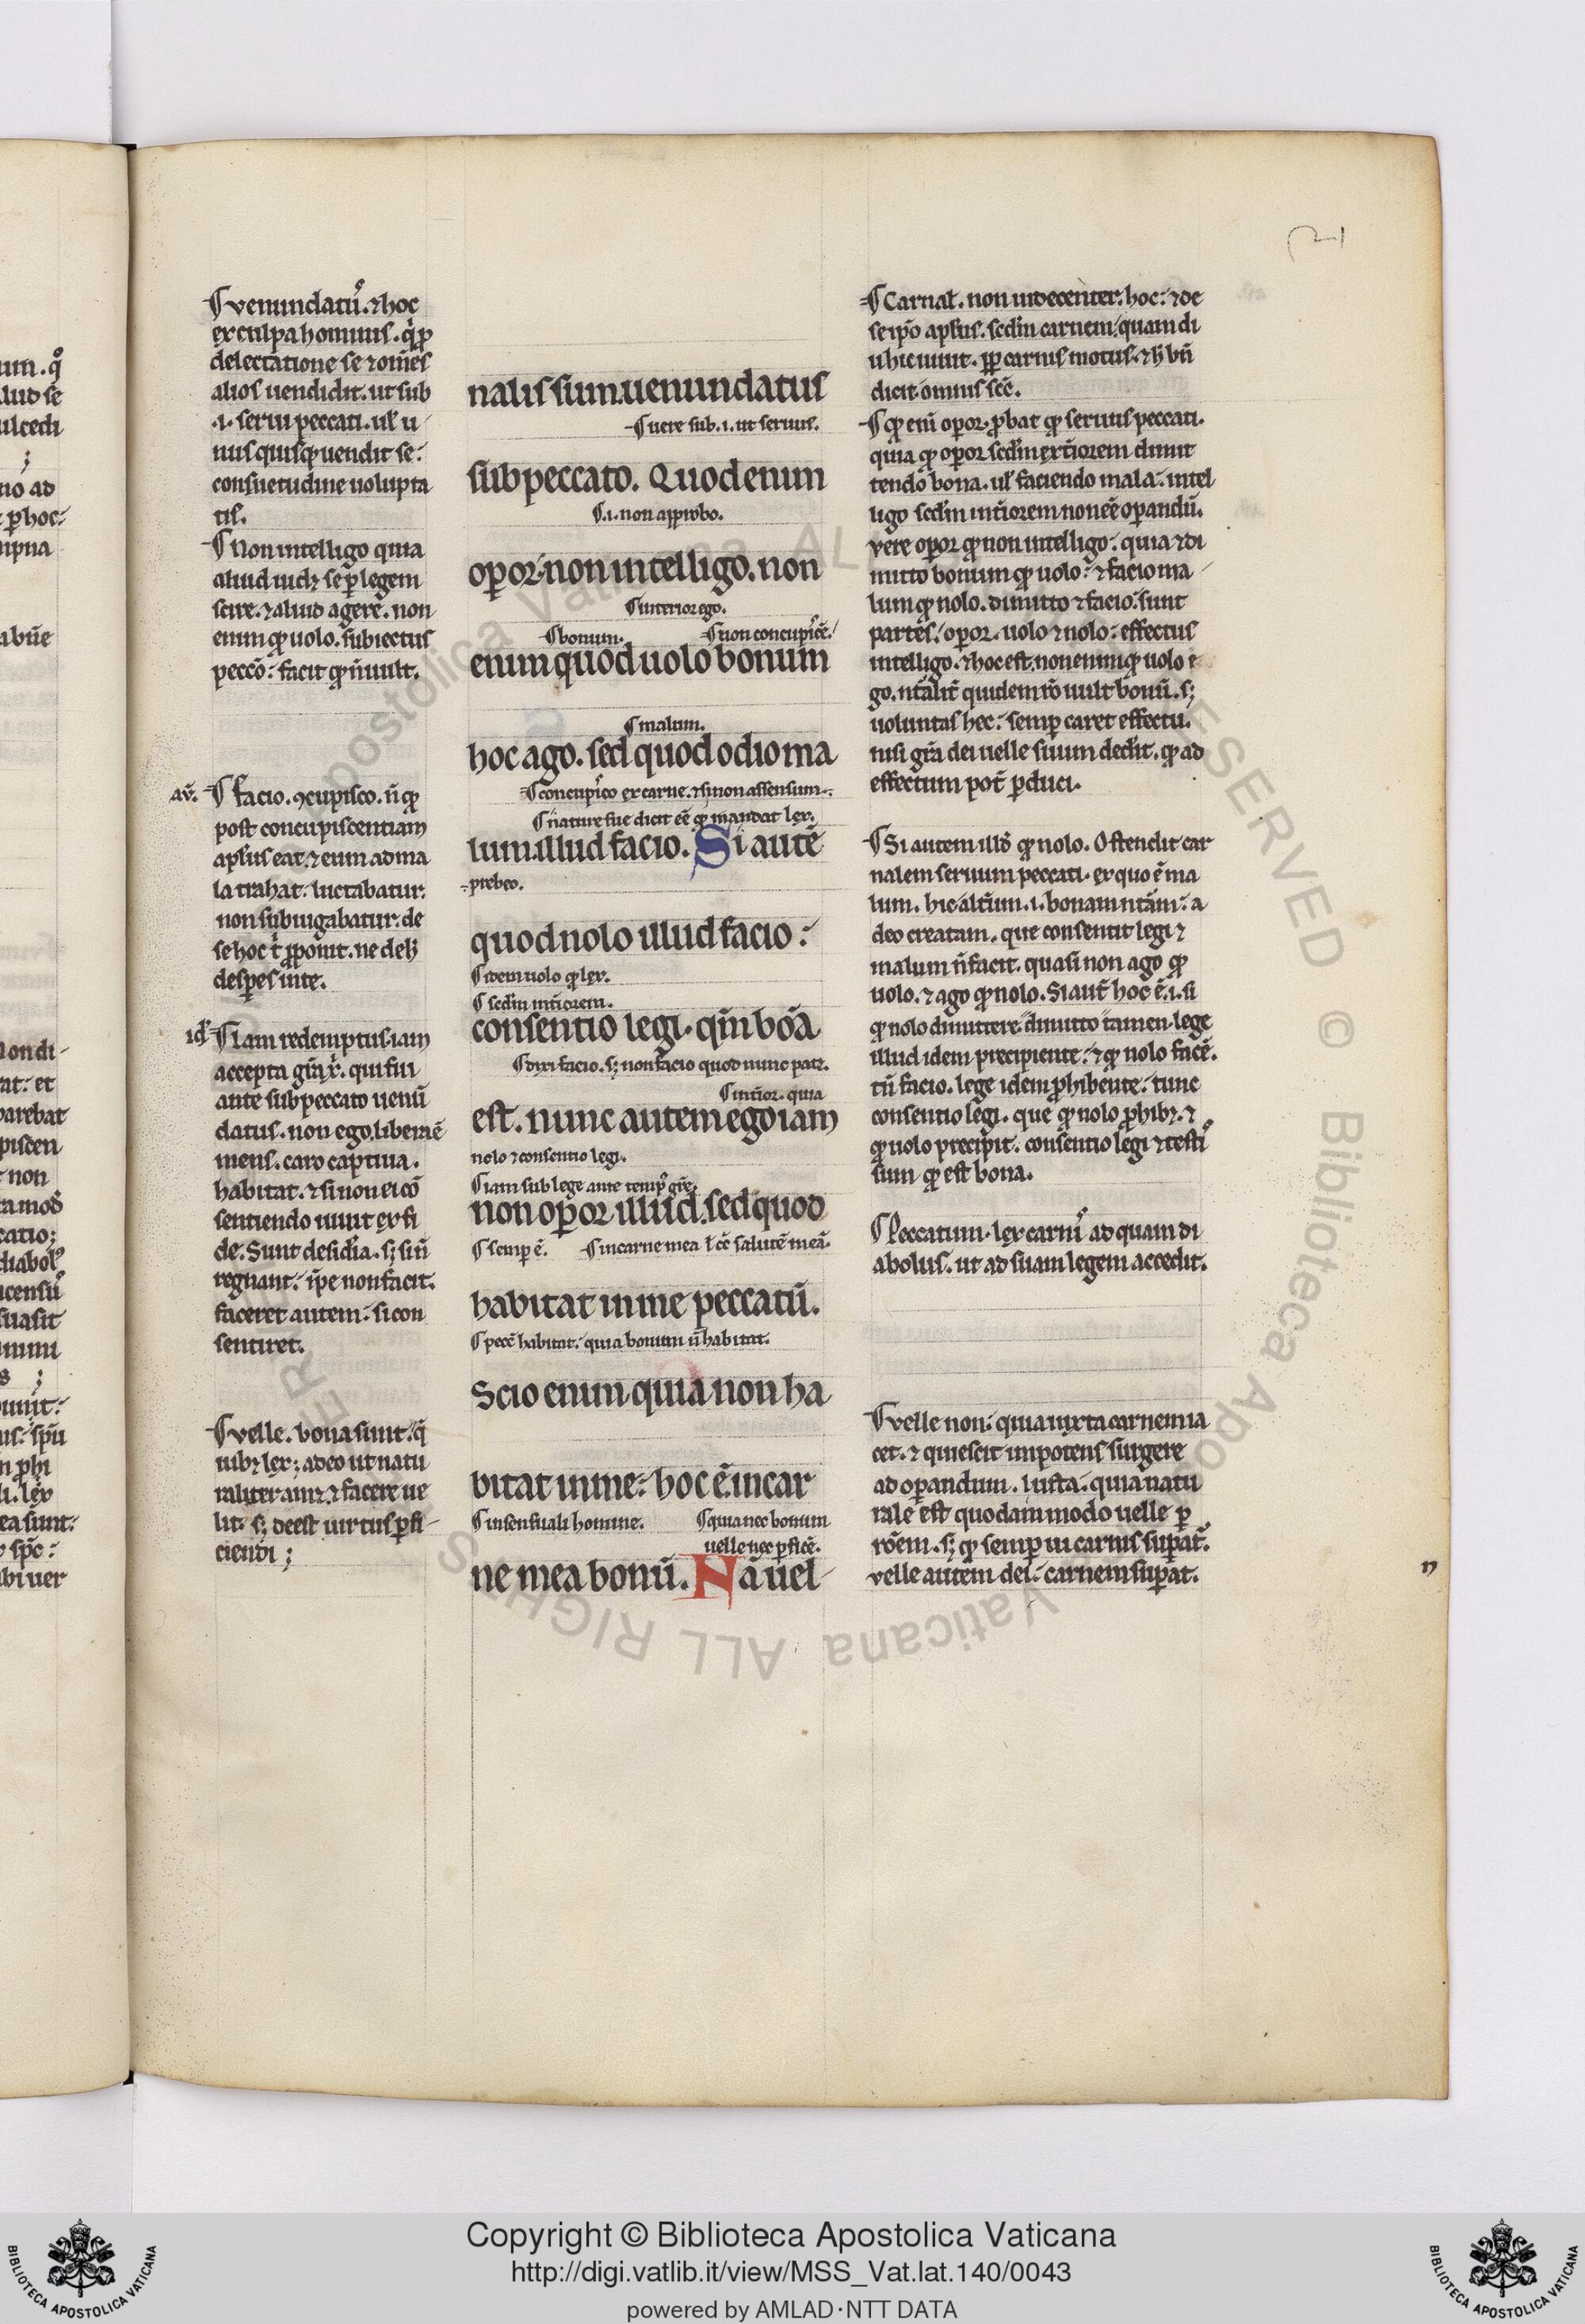 ¶ venundatꝰ. ⁊ hoc
ex culpa hominis. q̇ p̱
delectatione se ⁊ om̄es
alios uendidit. ut sub
.i. serui peccati. ul̓ u
nus quisq; uendit se:
consuetudine uolupta
tis.
¶ Non intelligo quia
aliud uidꝫ se ꝑ legem
scire. ⁊ aliud agere. non
enim qđ uolo. subiectus
peccō: facit qđ n̄ uult.
aū. ¶ facio. ꝯcupisco. n̄ qđ
post concupiscentiam
apl̄us eat. ⁊ eum ad ma
la trahat. luctabatur.
non subiugabatur. de
se hoc ꝓponit. ne
desperes in te.
id̄ ¶ Iam redemptus. iam
accepta grā xp̄i. qui fui
ante sub peccato uenū
datus. non ego. libera ē
mens. caro captiua.
habitat. ⁊ si non ei cō
sentiendo uiuit ex fi
de. Sunt desid̓ia. sꝫ si n̄
regnant: ip̄e non facit.
faceret autem: si con
sentiret.
¶ velle. bona sunt. q̄
iubꝫ lex; adeo ut natu
raliter amꝫ ⁊ facere ue
lit. sꝫ deest uirtus ꝑfi
ciendi ;
nalis sum. uenundatus
¶ uere sub. i. ut seruus.
sub peccato. Quod enim
¶ .i. non approbo.
oꝑor. non intelligo. non
¶ interior ego.
¶ bonum. ¶ non concupiscē.
enim quod uolo bonum
¶ malum.
hoc ago. sed quod odio ma
¶ concupisco ex carne. ⁊ si non assensum
¶ nature sue dicit eē qđ mandat lex.
lum. illud facio. Si autē
prebeo.
quod nolo illud facio:
¶ idem uolo qđ lex.
¶ scd̓m int̓iorem.
consentio legi. qm̄ bōa
¶ dixi facio. sꝫ non facio quod nunc patꝫ.
¶ int̓ior. quia
est. nunc autem ego iam
nolo ⁊ consentio legi.
¶ iam sub lege ante tempꝰ grē.
non oꝑor illud. sed quod
¶ semꝑ ē. ¶ in carne mea salutē meā.
habitat in me peccatū.
¶ peccm̄ habitat: quia bonum n̄ habitat.
Scio enim quia non ha
bitat in me: hoc ē. in car
¶ in sensuali homine. ¶ quia nec bonum
uelle nec ꝑficē.
ne mea bonū. Nā uel
¶ Carnal̓. non indecenter. hoc: ⁊ de
se ip̄o apl̄us. scd̓m carnem quam di
u hic uiuit. ꝓpt̓ carnis motus. ⁊ h̄ bn̄
dicit omnis scs̄.
¶ qđ eni oꝑor. ꝓbat qđ seruus peccati.
quia qđ oꝑor scd̓m ext̓iorem dimit
tendo bona. ul̓ faciendo mala: intel
ligo scd̓m int̓iorem non eē oꝑandū.
vere oꝑor qđ non intelligo: quia ⁊ di
mitto bonum qđ uolo: ⁊ facio ma
lum qđ nolo. dimitto ⁊ facio: sunt
partes. oꝑor. uolo ⁊ nolo: effectus
intelligo. ⁊ hoc est. non enim qđ uolo e
go. nt̄alit̓ quidem hō uult bonū. sꝫ
uoluntas hec: semꝑ caret effectu.
nisi grā dei uelle suum ded̓it. qđ ad
effectum pot̄ ꝑduci.
¶ Si autem illud qđ nolo. Ostendit car
nalem seruum peccati. ex quo ē ma
lum. hic alt̓um. i. bonam nt̄am: a
deo creatam. que consentit legi ⁊
malum n̄ facit. quasi non ago qđ
uolo. ⁊ ago qđ nolo. Si aut̄ hoc ē. i. si
qđ nolo dimittere: dimitto tamen. lege
illud idem precipiente: ⁊ qđ nolo facē.
tn̄ facio. lege idem ꝓhibente: tunc
consentio legi. que qđ nolo ꝓhibꝫ. ⁊
qđ uolo precipit. consentio legi ⁊ testis
sum qđ est bona.
¶ Peccatum. lex carnis ad quam di
abolus. ut ad suam legem accedit.
¶ velle non: quia iuxta carnem ia
cet. ⁊ quiescit impotens surgere
ad oꝑandum. Iusta: quia natu
rale est quodam modo uelle ꝑ
rōem. sꝫ qđ semꝑ ui carnis suꝑat̓.
velle autem dei: carnem suꝑat.
Copyright © Biblioteca Apostolica Vaticana
http://digi.vatlib.it/view/MSS_Vat.lat.140/0043
powered by AMLAD·NTT DATA
BIBLIOTECA APOSTOLICA VATICANA
BIBLIOTECA APOSTOLICA VATICANA